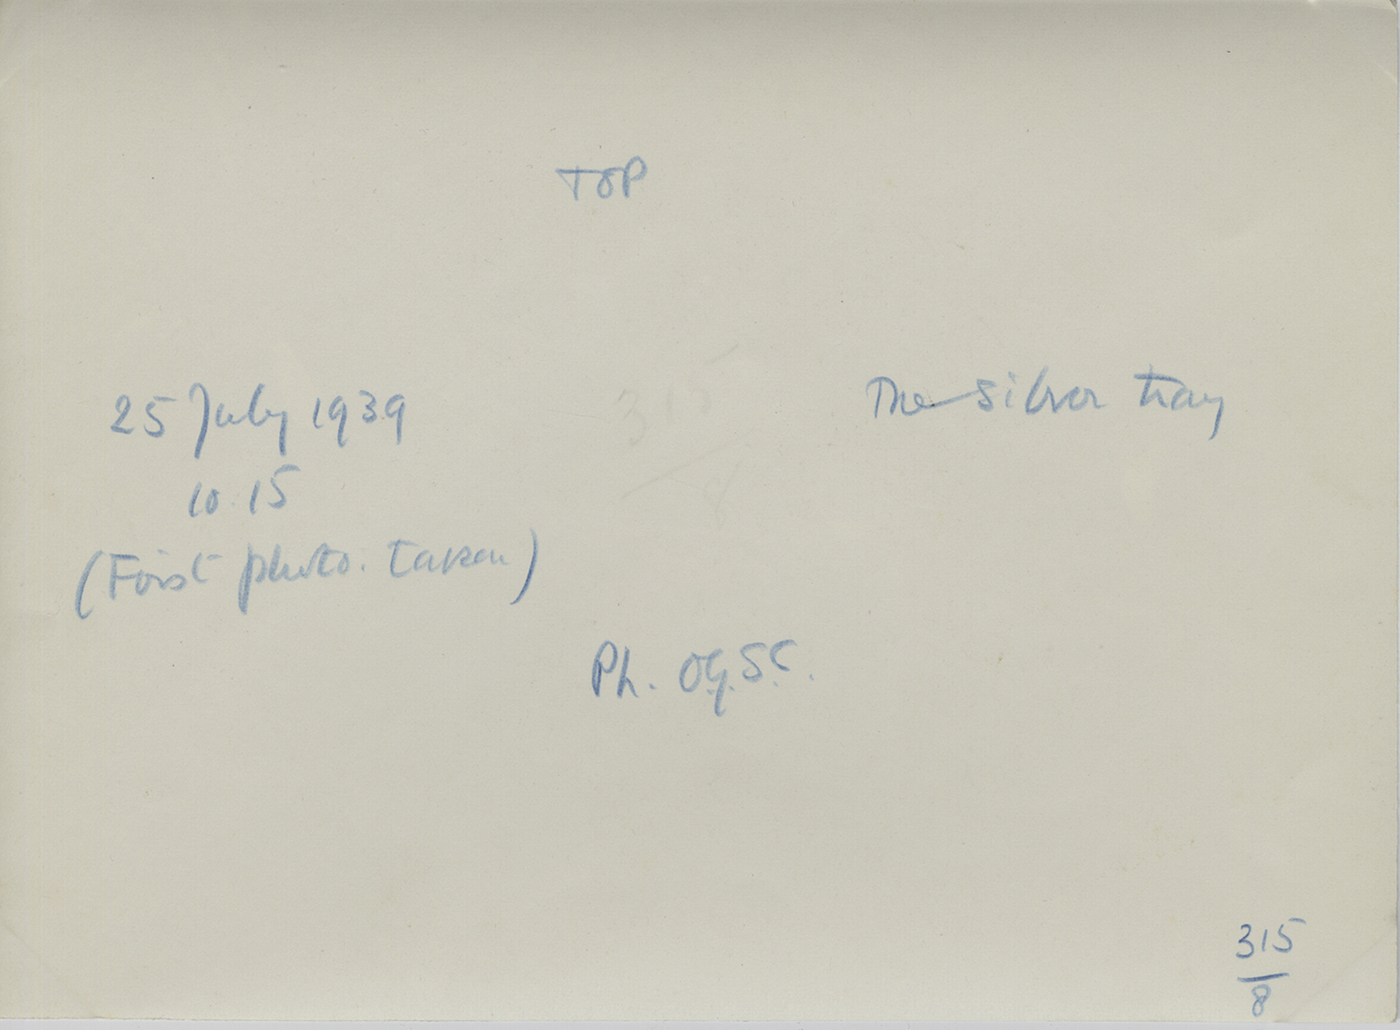 TOP
25 July 1939
10.15
(First photo. taken)
The silver tray
315
8
Ph. O.G.S.C.
315
8